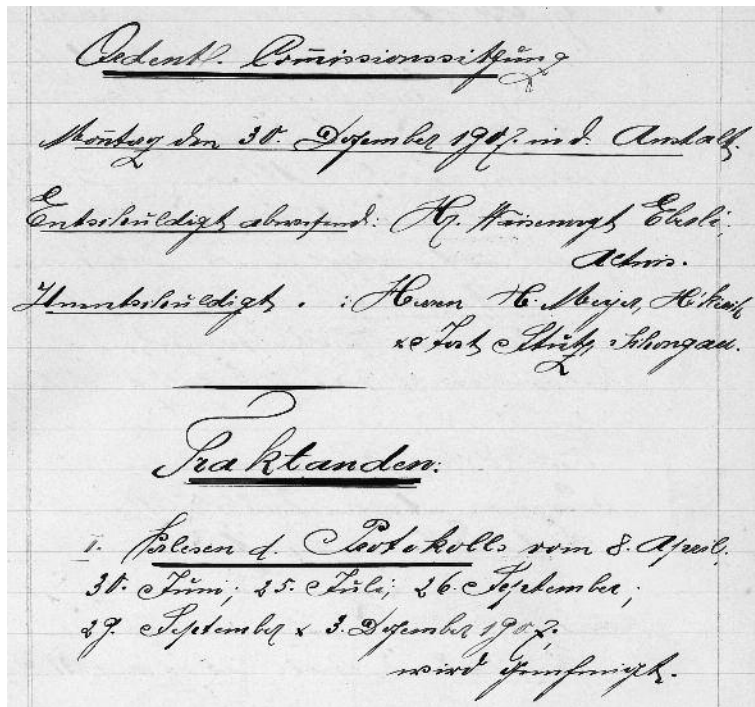 Ordentl. Com̄issionssitzung
Montag den 30. Dezember 1907. in d. Anstalt.
Entschuldigt abwesend: Hr. Waisenvogt Eberli,
Aetwis.
Unentschuldigt . : Herren H. Meyer,
& Jost Stutz, Schongau.
Traktanden:
1. Verlesen d. Protokolls vom 8. April,
30. Juni; 25. Juli; 26. September;
29. September & 3. Dezember 1907.
wird genehmigt.